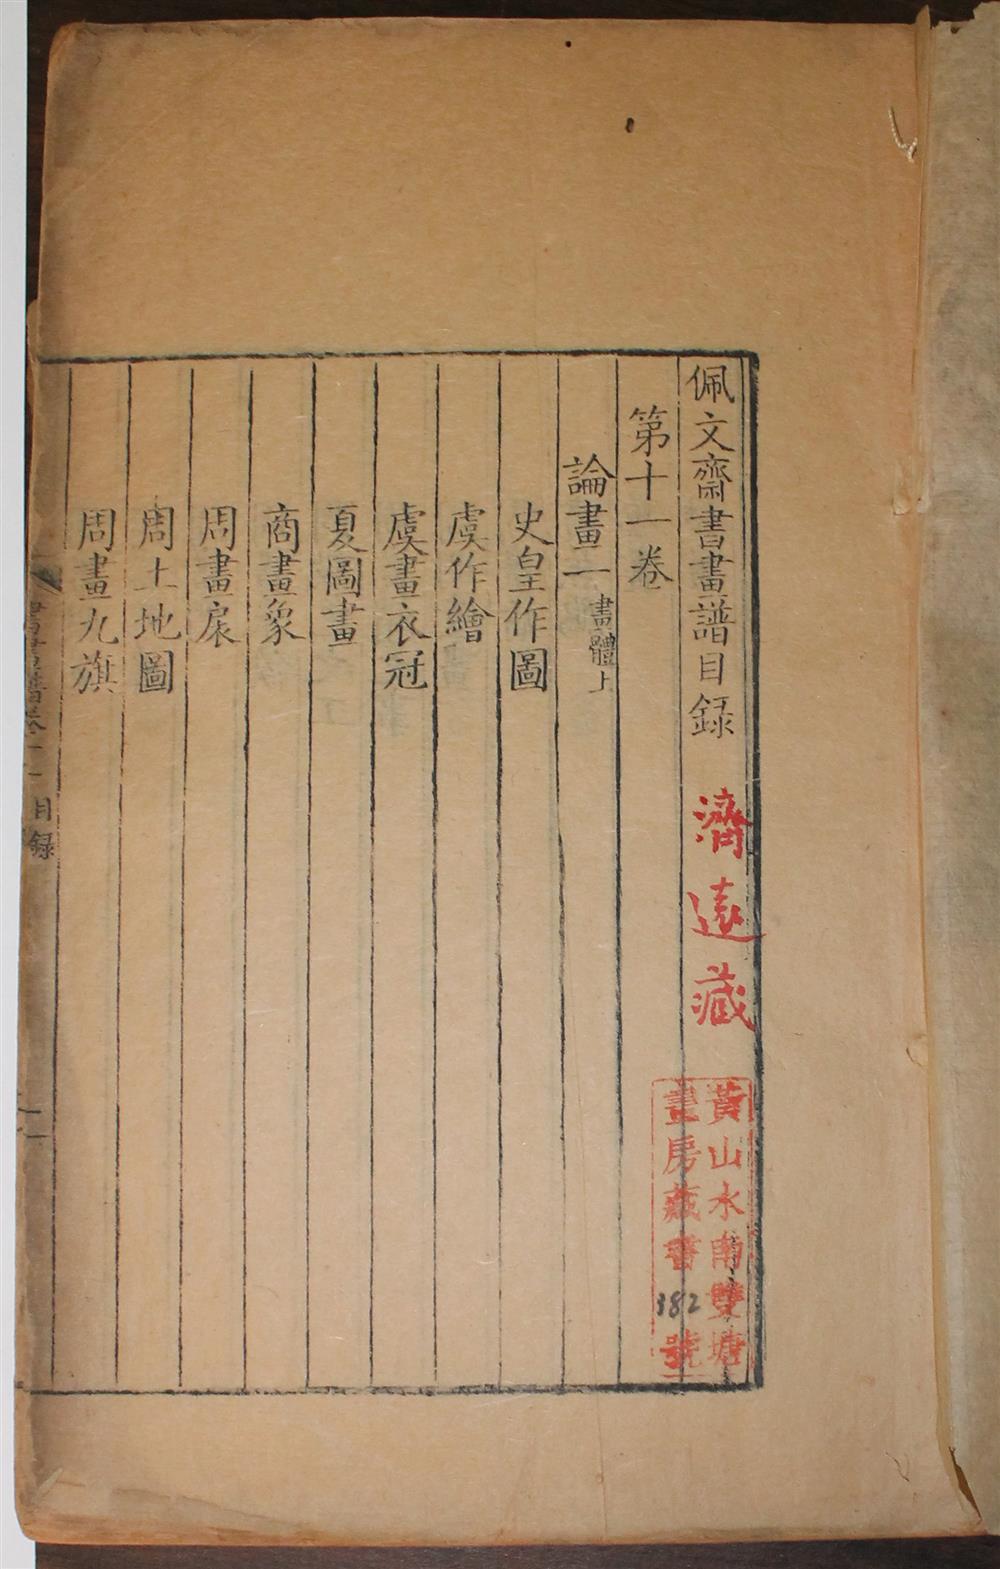 佩文齋書畫譜目録
濟遠藏
黃山水南雙塘
畫房藏書
382
號
第十一卷
論畫一 畫體上
史皇作圖
虞作繪
虞畫衣冠
夏圖畫
商畫象
周畫扆
周土地圖
周畫九旗
書畫譜卷十一
目録
一